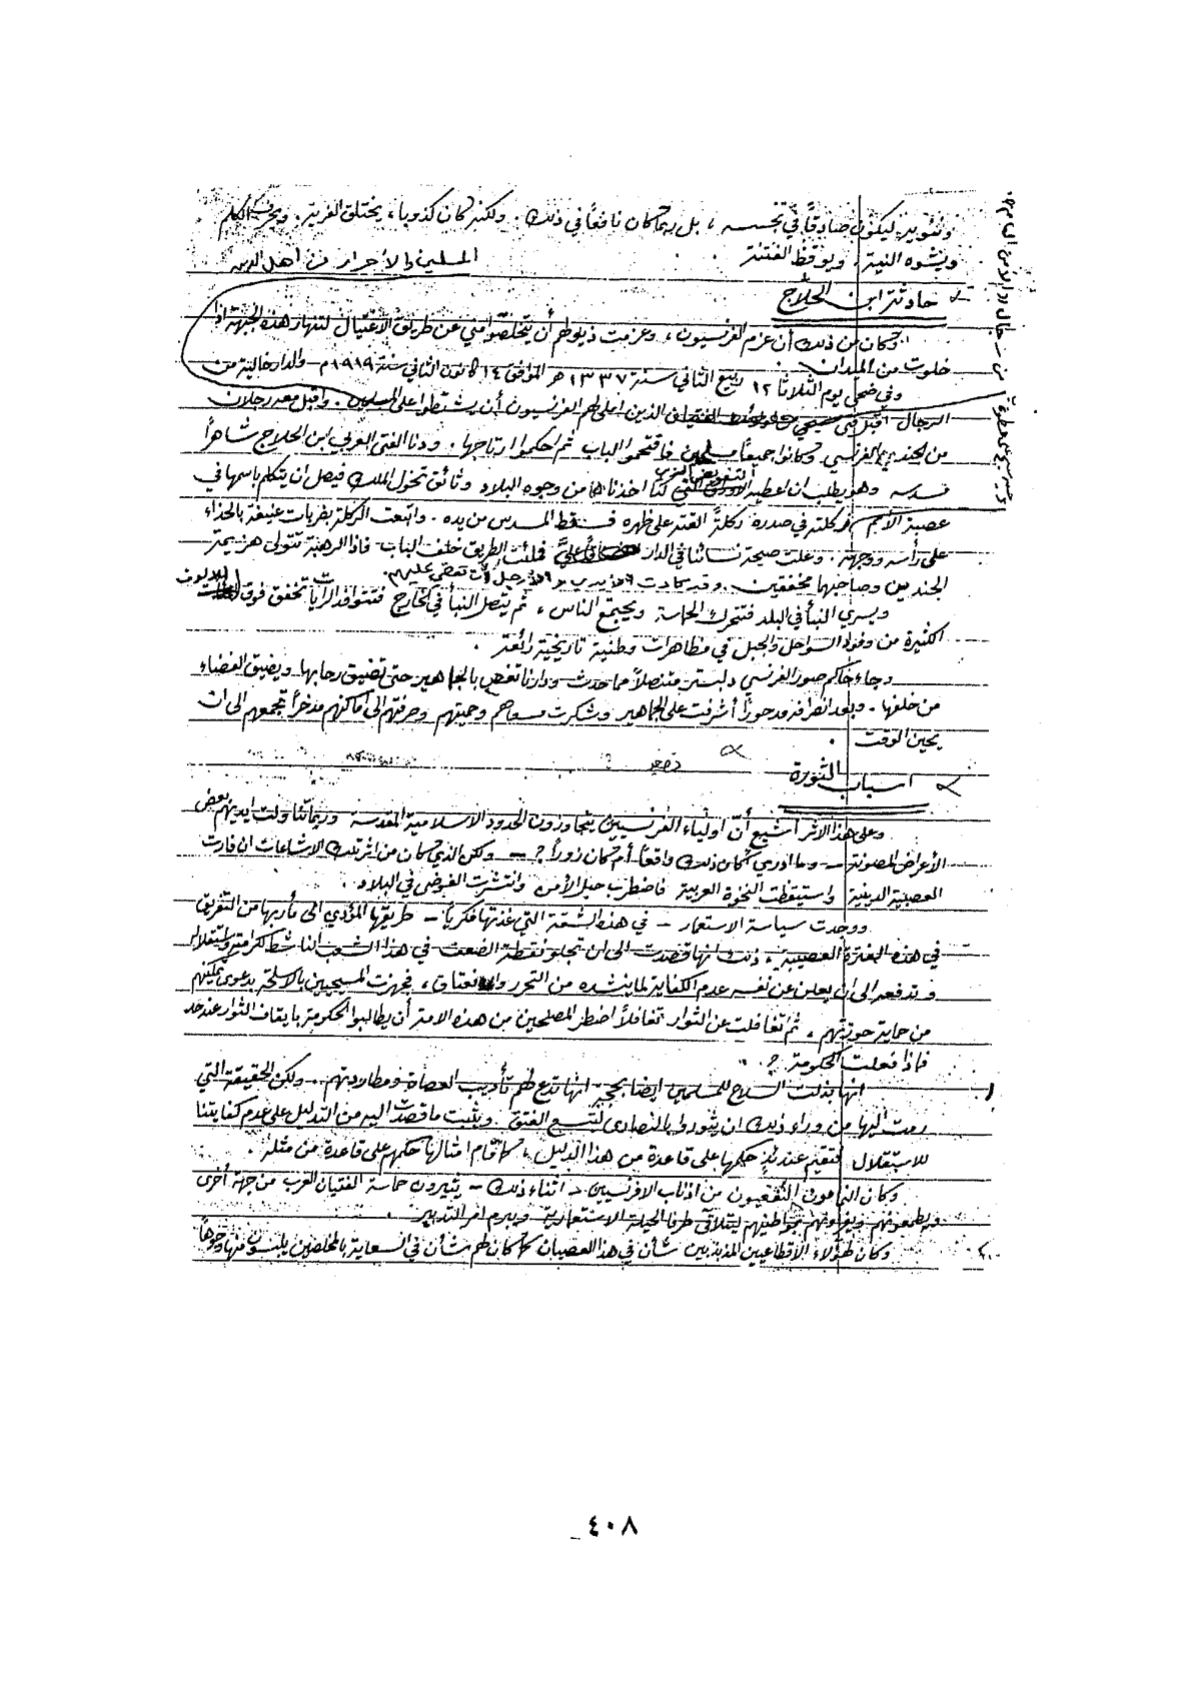 وتنويره ليكون صادقاً في تجسسه ، بل ربما كان نافعاً في ذلك . ولكنه كان كذوبا ، يختلق الفرية . ويحرف الكلم
ويشوه النية . ويوقظ الفتنة
المسلمين والأحرار من اهل الدين
حادثة ابن الحلاج
وكان من ذلك أن عزم الفرنسيون ، وعزمت ذيولهم أن يتخلصوا مني عن طريق الاغتيال لتنهار هذه الجبهة اذا
خلوت من الميدان .
وفي ضحى يوم الثلاثا ١٢ ربيع الثاني سنة ١٣٣٧ هـ الموافق ١٤ كانون الثاني سنة ١٩١٩ م - والدار خالية من
الرجال - اقبل فتى الذين املى لهم الفرنسيون أن يشتطوا على المسلمين . واقبل معه رجلان
من الجند الفرنسي وكانوا جميعاً مسلحين فاقتحموا الباب ثم احكموا ارتاجها . ودنا الفتى العربي ابن الحلاج شاهراً
مسدسه وهو يطلب ان اعطيه التفويض الذي كنا اخذناه من وجوه البلاد وثائق تخول الملك فيصل ان يتكلم باسمها في
عصبة الأمم فركلته في صدره ركلة القته على ظهره فسقط المسدس من يده . واتبعت الركلة بضربات عنيفة بالحذاء
على رأسه ووجهه . وعلت صيحة نسائنا في الدار فملئت الطريق خلف الباب - فاذا الرهبة تتولى هزيمة
الجنديين وصاحبهما مخفقين . وقد كادت الأيدي والأرجل أن تقضي عليهم .
ويسري النبأ في البلد فتتحرك الحماسة ويجتمع الناس ، ثم يتصل النبأ في الخارج فتتوافد الرايات تخفق فوق
الكثيرة من وفود السواحل والجبل في مظاهرات وطنية تاريخية رائعة .
وجاء حاكم صور الفرنسي دلبستر متنصلاً مما حدث ودارنا تغص بالجماهير حتى تضيق رحابها ويضيق الفضاء
من خلفها . وبعد انصرافه مدحوراً أشرفت على الجماهير وشكرت مسعاهم وحميتهم وصرفتهم الى اماكنهم مدخراً تجمعهم الى ان
يحين الوقت .
اسباب الثورة
وعلى هذا الاثر أشيع أنّ اولياء الفرنسيين يتجاوزون الحدود الاسلامية المقدسة وربما تناولت ايديهم بعض
الأعراض المصونة - وما ادري أكان ذلك واقعاً أم كان زوراً ؟ - ولكن الذي كان من اثر تلك الاشاعات ان فارت
العصبية الدينية واستيقظت النخوة العربية فاضطرب حبل الأمن وانتشرت الفوضى في البلاد .
ووجدت سياسة الاستعمار - في هذه الشقة التي غذتها فكرياً - طريقها المؤدي الى مآربها من التفريق
في هذه الفترة العصيبة ، ذلك انها قصدت الى ان تجلو نقطة الضعف في هذا الشعب الناشط لكرامته واستقلاله
وتدفعه الى ان يعلن عن نفسه عدم الكفاية لما ينشده من التحرر والانعتاق ، فجهزت المسيحيين بالاسلحة بدعوى تمكينهم
من حماية حوزتهم . ثم تغافلت عن الثوار تغافلاً اضطر المصلحين من هذه الامة أن يطالبوا الحكومة بايقاف الثوار عند حد
فماذا فعلت الحكومة ؟ ..
انها بذلت السلاح للمسلمين ايضا بحجة انها تدع لهم تأديب العصاة ومطاردتهم .. ولكن الحقيقة التي
رمت اليها من وراء ذلك ان يثوروا بالنصارى لتتسع الفتق . ويثبت ما قصدت اليه من التدليل على عدم كفايتنا
للاستقلال فتقيم عندئذٍ حكمها على قاعدة من هذا الدليل ، كما اقام امثالها حكمهم على قاعدة من مثله .
وكان النمامون النفعيون من اذناب الافرنسيين - اثناء ذلك - يثيرون حماسة الفتيان العرب من جهة أخرى
ويطمعونهم ويغرونهم بمواطنيهم ليتلاقى طرفا الحيلة الاستعمارية ويبرم امر التدبير .
وكان لهؤلاء الاقطاعيين المذبذبين شأن في هذا العصيان كما كان لهم شأن في السعاية بالمخلصين يلبسون منها وجوهاً
٤٠٨